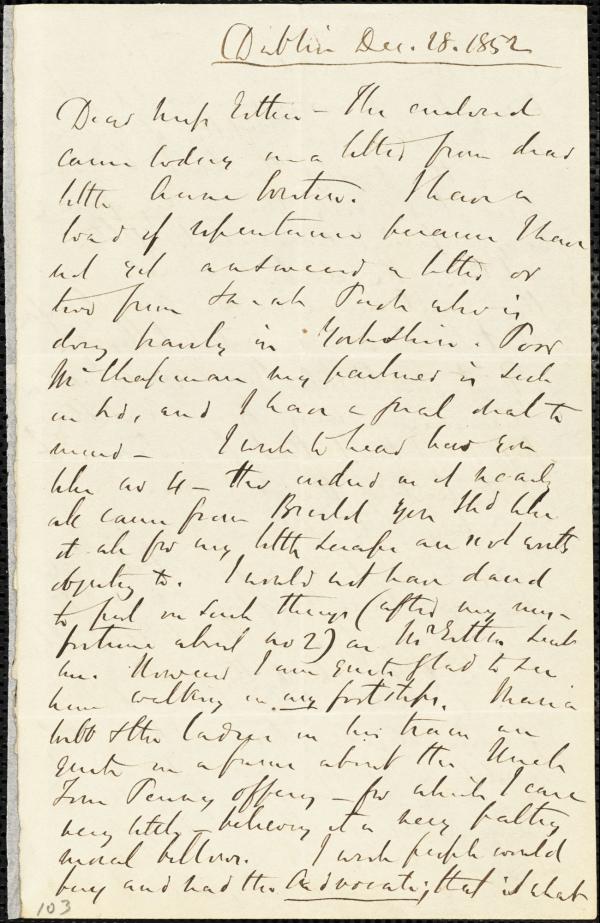 Dublin Dec. 28. 1852
Dear Miss Estlin - The enclosed
came today in a letter from dear
little Anne
I have a
load of repentance because I have
not yet answered a letter or
two from Sarah Pugh who is
doing bravely in Yorkshire. Poor
Mr Chapman my partner is sick
in bed, and I have a great deal to
mind - I wish to hear how you
like no 4 - tho indeed as it nearly
all came from Bristol you shd like
it all for my little scraps are not worth
objecting to. I would not have dared
to put in such things (after my mis-
fortune about no 2) as Mr Estlin sent
me. However I am quite glad to see
him walking in my footsteps. Maria
Webb & the ladies in her train are
quite in a furor about the Uncle
Tom Penny offering - for which I care
very little - believing it a very paltry
moral bellows. I wish people would
buy and read the Advocate, that is what
103